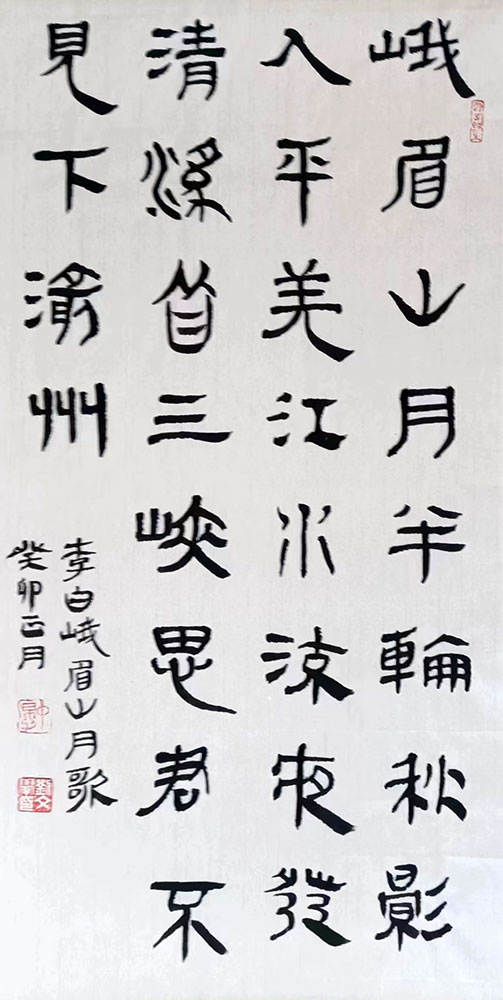 峨眉山月半輪秋影
入平羌江水流夜發
清溪向三峽思君不
見下渝州
李白峨眉山月歌
癸卯正月